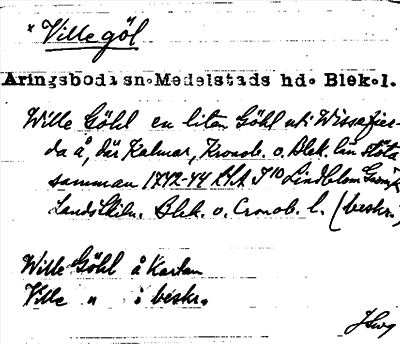 * Ville göl
Aringsboda sn. Medelstads hd. Blek.l.
Wille Göhl en liten Göhl uti Wissefier-
da å, där Kalmar, Kronob. o. Blek. län stöta
samman 1742-44 LSA I 10 Lindblom
Landsk. Blek. o. Cronob. l. (beskr.)
Wille Göhl å Kartan
Ville " i beskr.